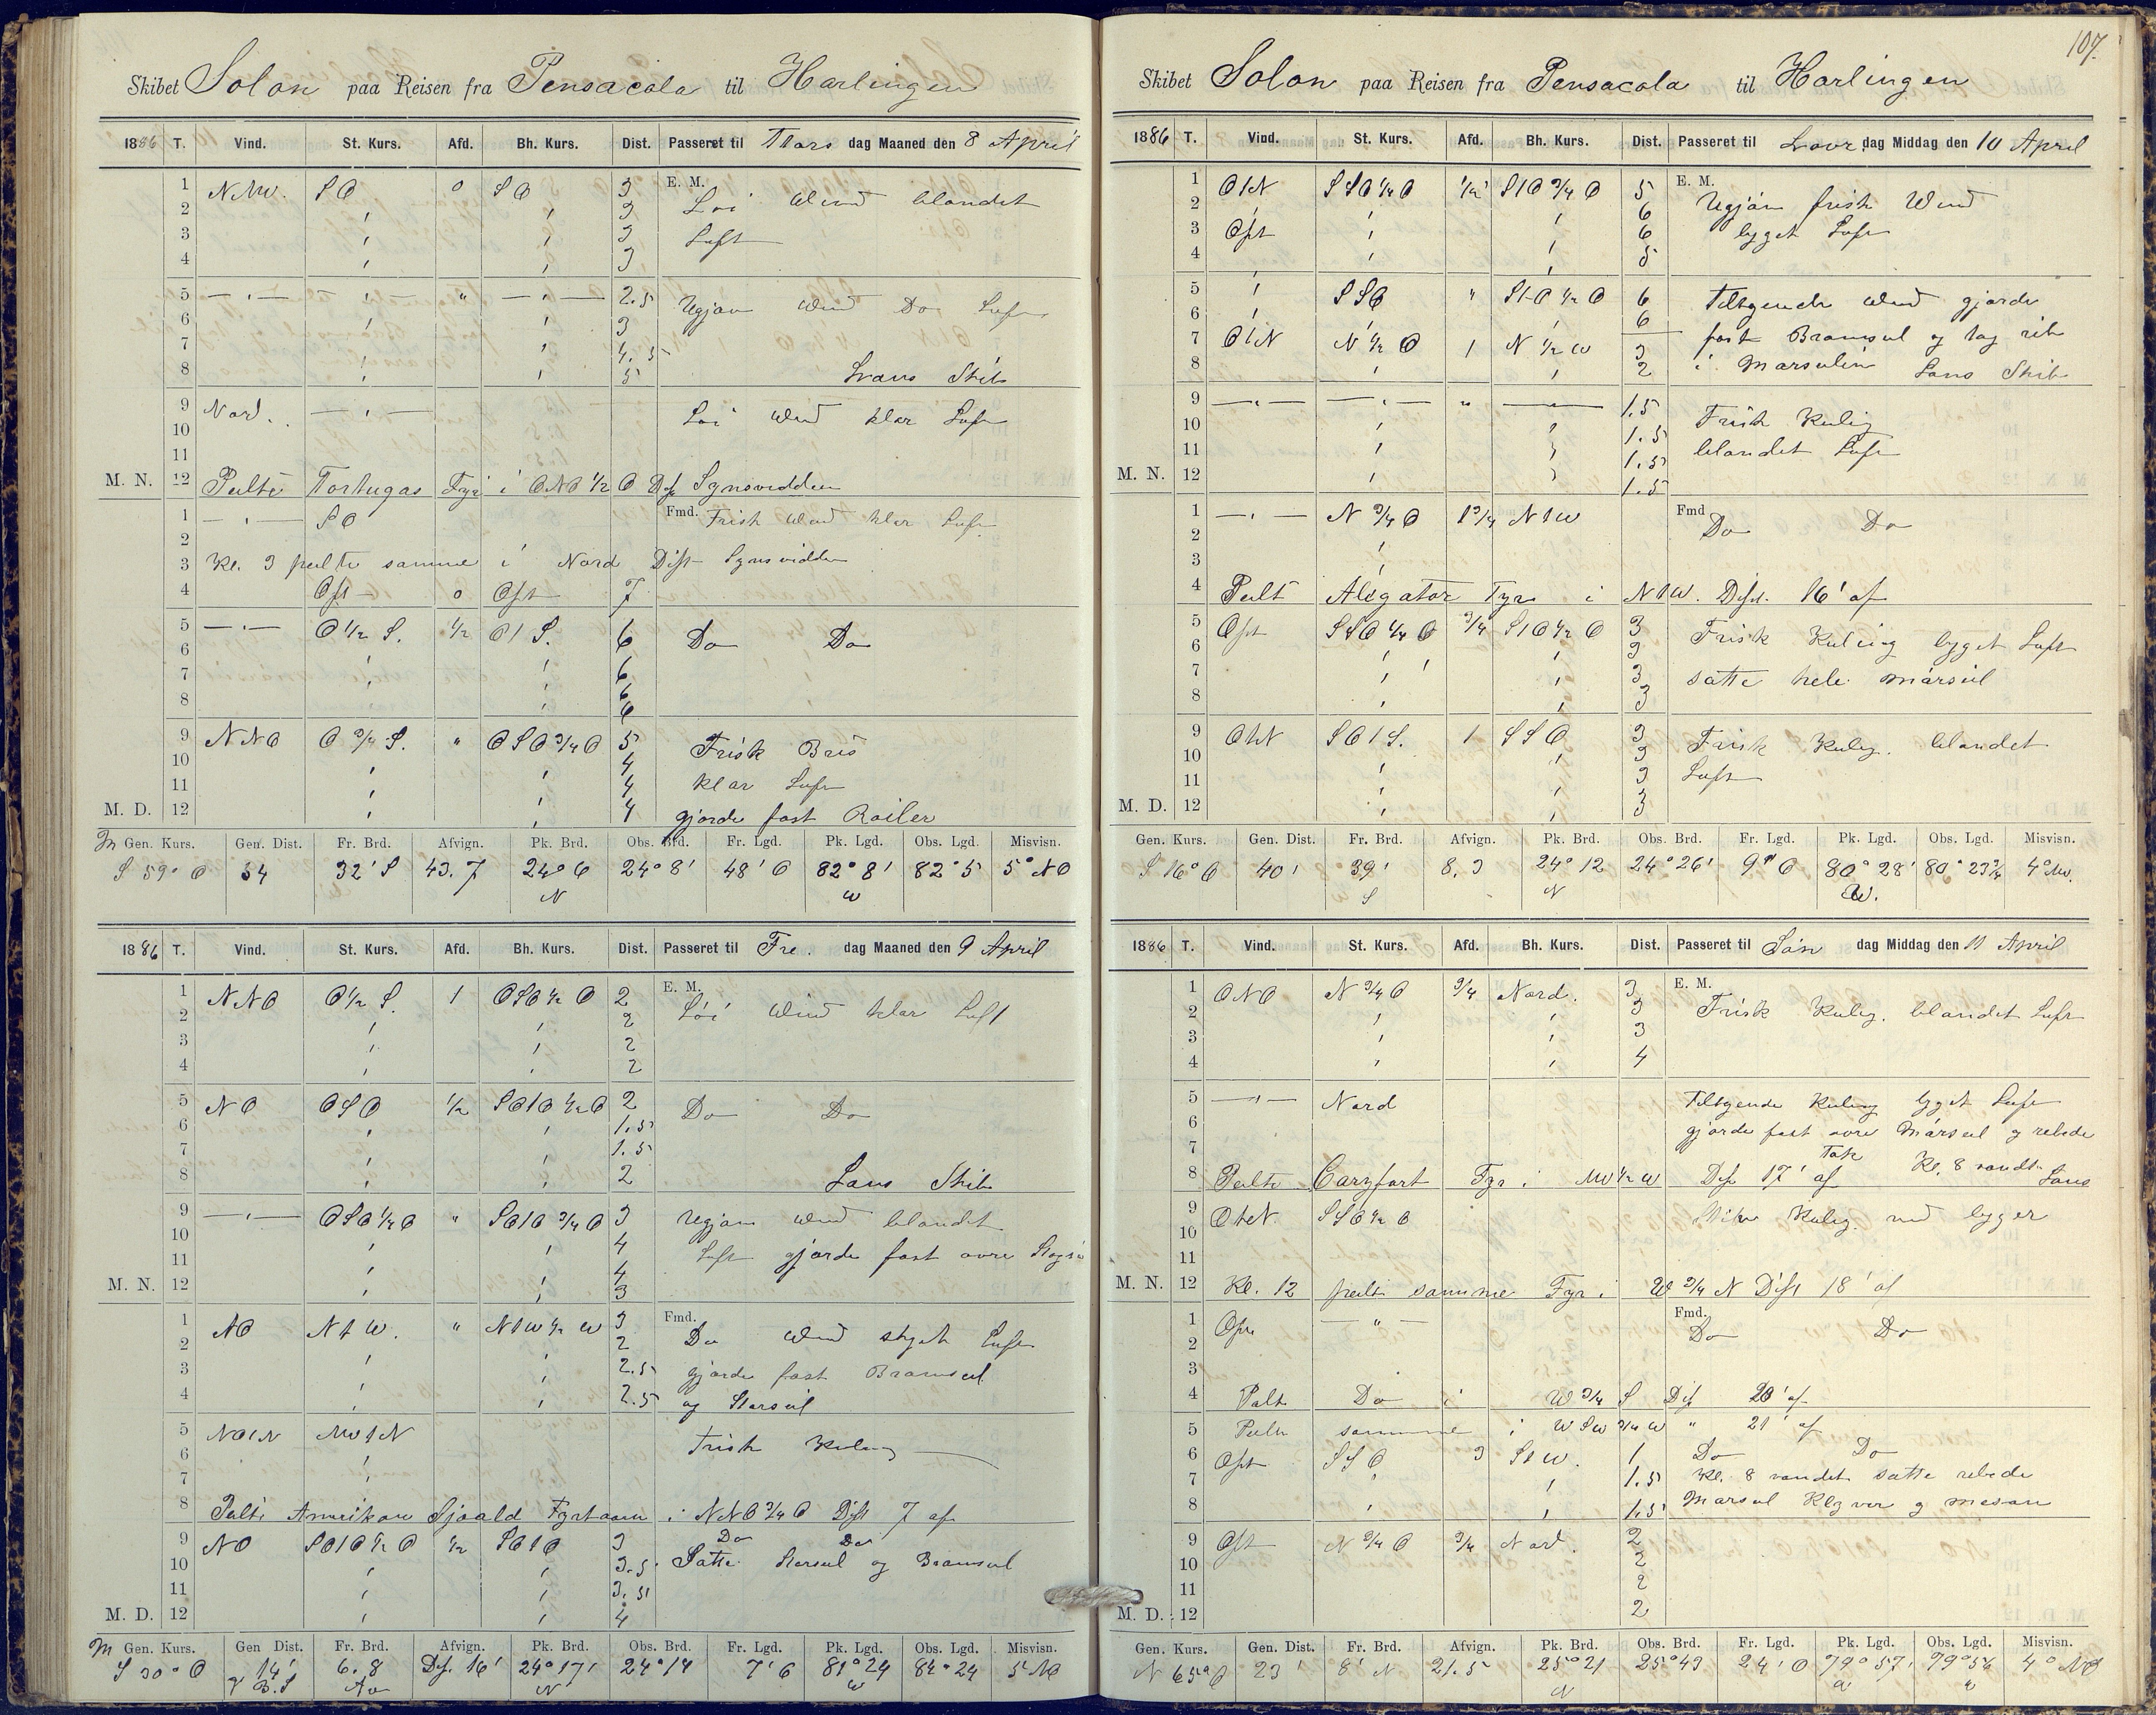 Skibet Solon paa Reisen fra Pensacola til Harlingen
1886 T. Vind. St. Kurs. Afd. Bh. Kurs. Dist. Passeret til Tors dag Maaned den 8 April
E. M.
1 NNW. SO 0 SO 3 Løi Wind blandet
2 3
3 3 Luft
4 3
5 2.5 Ugjævn Wind Do Luft
6 3
7 4.5
8 5 Lans Skib
9 Nord. Løi Wind klar Luft
10
11
M. N. 12 Peilte Tortugas Fyr i ONO 1/2 O Dist Synsvidden
1 SO Fmd. Frisk Wind klar Luft
2
3 Kl. 3 peilte samme i Nord Dist Synsvidden
4 Ost 0 Ost 7
5 O 1/2 S. 1/2 O t S. 6 Do Do
6 6
7 6
8 6
9 NNO O 3/4 S. " OSO 3/4 O 5 Frisk Bris
10 4
11 4 klar Luft
M. D. 12 4 gjorde fast Røiler
M Gen. Kurs. Gen. Dist. Fr. Brd. Afvign. Pk. Brd. Obs. Brd. Fr. Lgd. Pk. Lgd. Obs. Lgd. Misvisn.
S 59° O 54 32' S 43.7 24° 6 24° 8' 48' O 82° 8' 82° 5 5° NO
N W
1886 T. Vind. St. Kurs. Afd. Bh. Kurs. Dist. Passeret til Fre. dag Maaned den 9 April
E. M.
1 NNO O 1/2 S. 1 OSO 1/2 O 2 Løi Wind klar Luft
2 2
3 2
4 2
5 NO OSO 1/2 SO t O 1/2 O 2 Do Do
6 1.5
7 1.5
8 2 Lans Skib
9 OSO 1/2 O " SO t O 3/4 O 3 Ugjævn Wind blandet
10 4
11 4 Luft gjorde fast øvre
M. N. 12 3
Fmd.
1 NO N t W. " N t W 1/2 W 3 Do Wind skyet Luft
2 2
3 2.5 gjorde fast Bramseil
4 2.5 og Storseil
5 NO t N NW t N Frisk Kuling
6
7
8 Peilte Amerikan Fyrtaarn i NNO 3/4 O Dist 7 af
9 NO SO t O 1/2 O 1/2 SO t O 3 Do Do
10 3.5 Satte Storseil og Bramseil
11 3.5
M. D. 12 4
M Gen. Kurs. Gen Dist. Fr. Brd. Afvign. Pk. Brd. Obs. Brd. Fr. Lgd. Pk. Lgd. Obs. Lgd. Misvisn.
S 30° O 14' 6.8 Dist. 16' 24° 17' 24° 14 7' 6 81° 24 82° 24 5° NO
N W
107.
Skibet Solon paa Reisen fra Pensacola til Harlingen
1886 T. Vind. St. Kurs. Afd. Bh. Kurs. Dist. Passeret til Løver dag Middag den 10 April
E. M.
1 O t N SSO 1/4 O 1/2 S t O 3/4 O 5 Ugjævn frisk Wind
2 6
3 Ost 6 byget Luft
4 5
5 SSO " S t O 1/2 O 6 Tiltagende Wind gjorde
6 6
7 O t N N 1/2 O 1 N 1/2 W 3 fast Bramseil og tog rib
8 2 i Marseilene Lans Skib
9 1.5 Frisk Kuling
10 1.5
11 1.5 blandet Luft
M. N. 12 1.5
Fmd
1 N 3/4 O 1 3/4 N t W Do Do
2
3
4 Peilt Aligator Fyr i N t W. Dist. 16' af
5 Ost SSO 1/4 O 3/4 S t O 1/2 O 3 Frisk Kuling byget Luft
6 3
7 3 satte hele mærseil
8 3
9 O t N SO t S. 1 SSO 3 Frisk Kuling. blandet
10 3
11 3 Luft
M. D. 12 3
Gen. Kurs. Gen. Dist. Fr. Brd. Afvign. Pk. Brd. Obs. Brd. Fr. Lgd. Pk. Lgd. Obs. Lgd. Misvisn.
S 16° O 40' 39' 8.3 24° 12 24° 26' 9' O 80° 28' 80° 23 3/4 4° NO.
S N W.
1886 T. Vind. St. Kurs. Afd. Bh. Kurs. Dist. Passeret til Søn dag Middag den 11 April
E. M.
1 ONO N 3/4 O 3/4 Nord. 3 Frisk Kuling. blandet Luft
2 3
3 3
4 4
5 Nord Tiltagende Kuling bygget Luft
6 gjorde fast øvre Mærseil og rebede
7
8 Peilte Caryfort Fyr i NW 1/2 W Dist 17' af Kl. 8 vendte Lans
9 O t N. SSO 1/2 O Skib Kuling. med byger
10
11
M. N. 12 Kl. 12 peilte samme Fyr i W 3/4 N Dist 18' af
Fmd.
1 Ost " Do Do
2
3
4 Peilt Do i W 3/4 S Dist 20' af
5 Peilte samme i WSW 3/4 W " 21' af
6 Ost SSO 3 S t W. 1 Do Do
7 1.5 Kl. 8 vendet satte rebede
8 1.5 Marseil Klyver og mesan
9 Ost N 3/4 O 3/4 Nord. 2
10 2
11 2
M. D. 12 2
Gen. Kurs. Gen. Dist. Fr. Brd. Afvign. Pk. Brd. Obs. Brd. Fr. Lgd. Pk. Lgd. Obs. Lgd. Misvisn.
N 65° O 23' 8' N 21.5 25° 21 25° 43 24' O 79° 57' 79° 56 4° NO
N W W